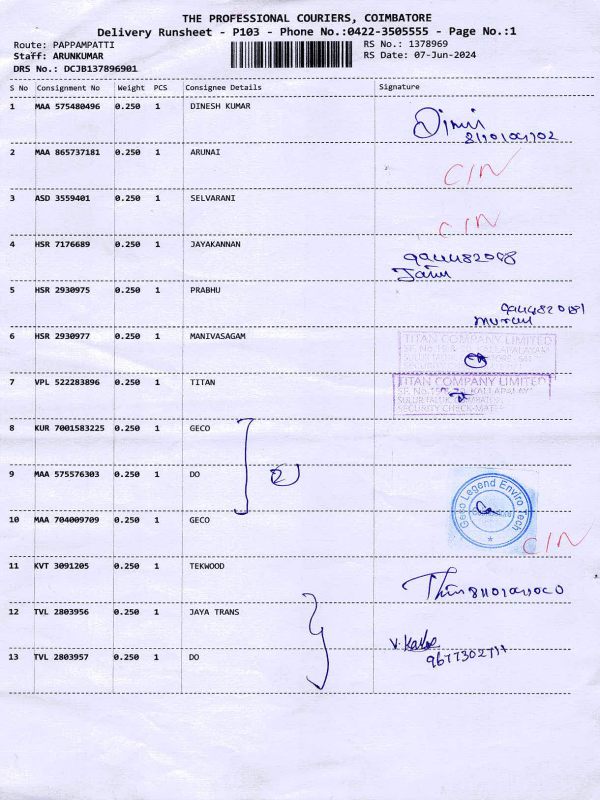 THE PROFESSIONAL COURIERS, COIMBATORE
Delivery Runsheet - P103 - Phone No.:0422-3505555 - Page No.:1
Route: PAPPAMPATTI RS No.: 1378969
Staff: ARUNKUMAR RS Date: 07-Jun-2024
DRS No.: DCJB137896901
S No Consignment No Weight PCS Consignee Details Signature
1 MAA 575480496 0.250 1 DINESH KUMAR
2 MAA 865737181 0.250 1 ARUNAI C/N
3 ASD 3559401 0.250 1 SELVARANI C/N
4 HSR 7176689 0.250 1 JAYAKANNAN
5 HSR 2930975 0.250 1 PRABHU
6 HSR 2930977 0.250 1 MANIVASAGAM TITAN COMPANY LIMITED
7 VPL 522283896 0.250 1 TITAN TITAN COMPANY LIMITED
SECURITY CHECK
8 KUR 7001583225 0.250 1 GECO
9 MAA 575576303 0.250 1 DO 2
Geco Legend Enviro Tech
10 MAA 704009709 0.250 1 GECO C/N
11 KVT 3091205 0.250 1 TEKWOOD
12 TVL 2803956 0.250 1 JAYA TRANS
13 TVL 2803957 0.250 1 DO